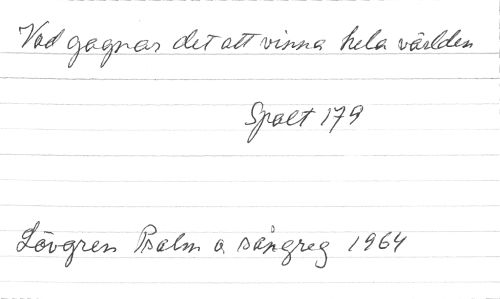 Vad gagnar det att vinna hela världen
Spalt 179
Lövgren Psalm o sångreg 1964